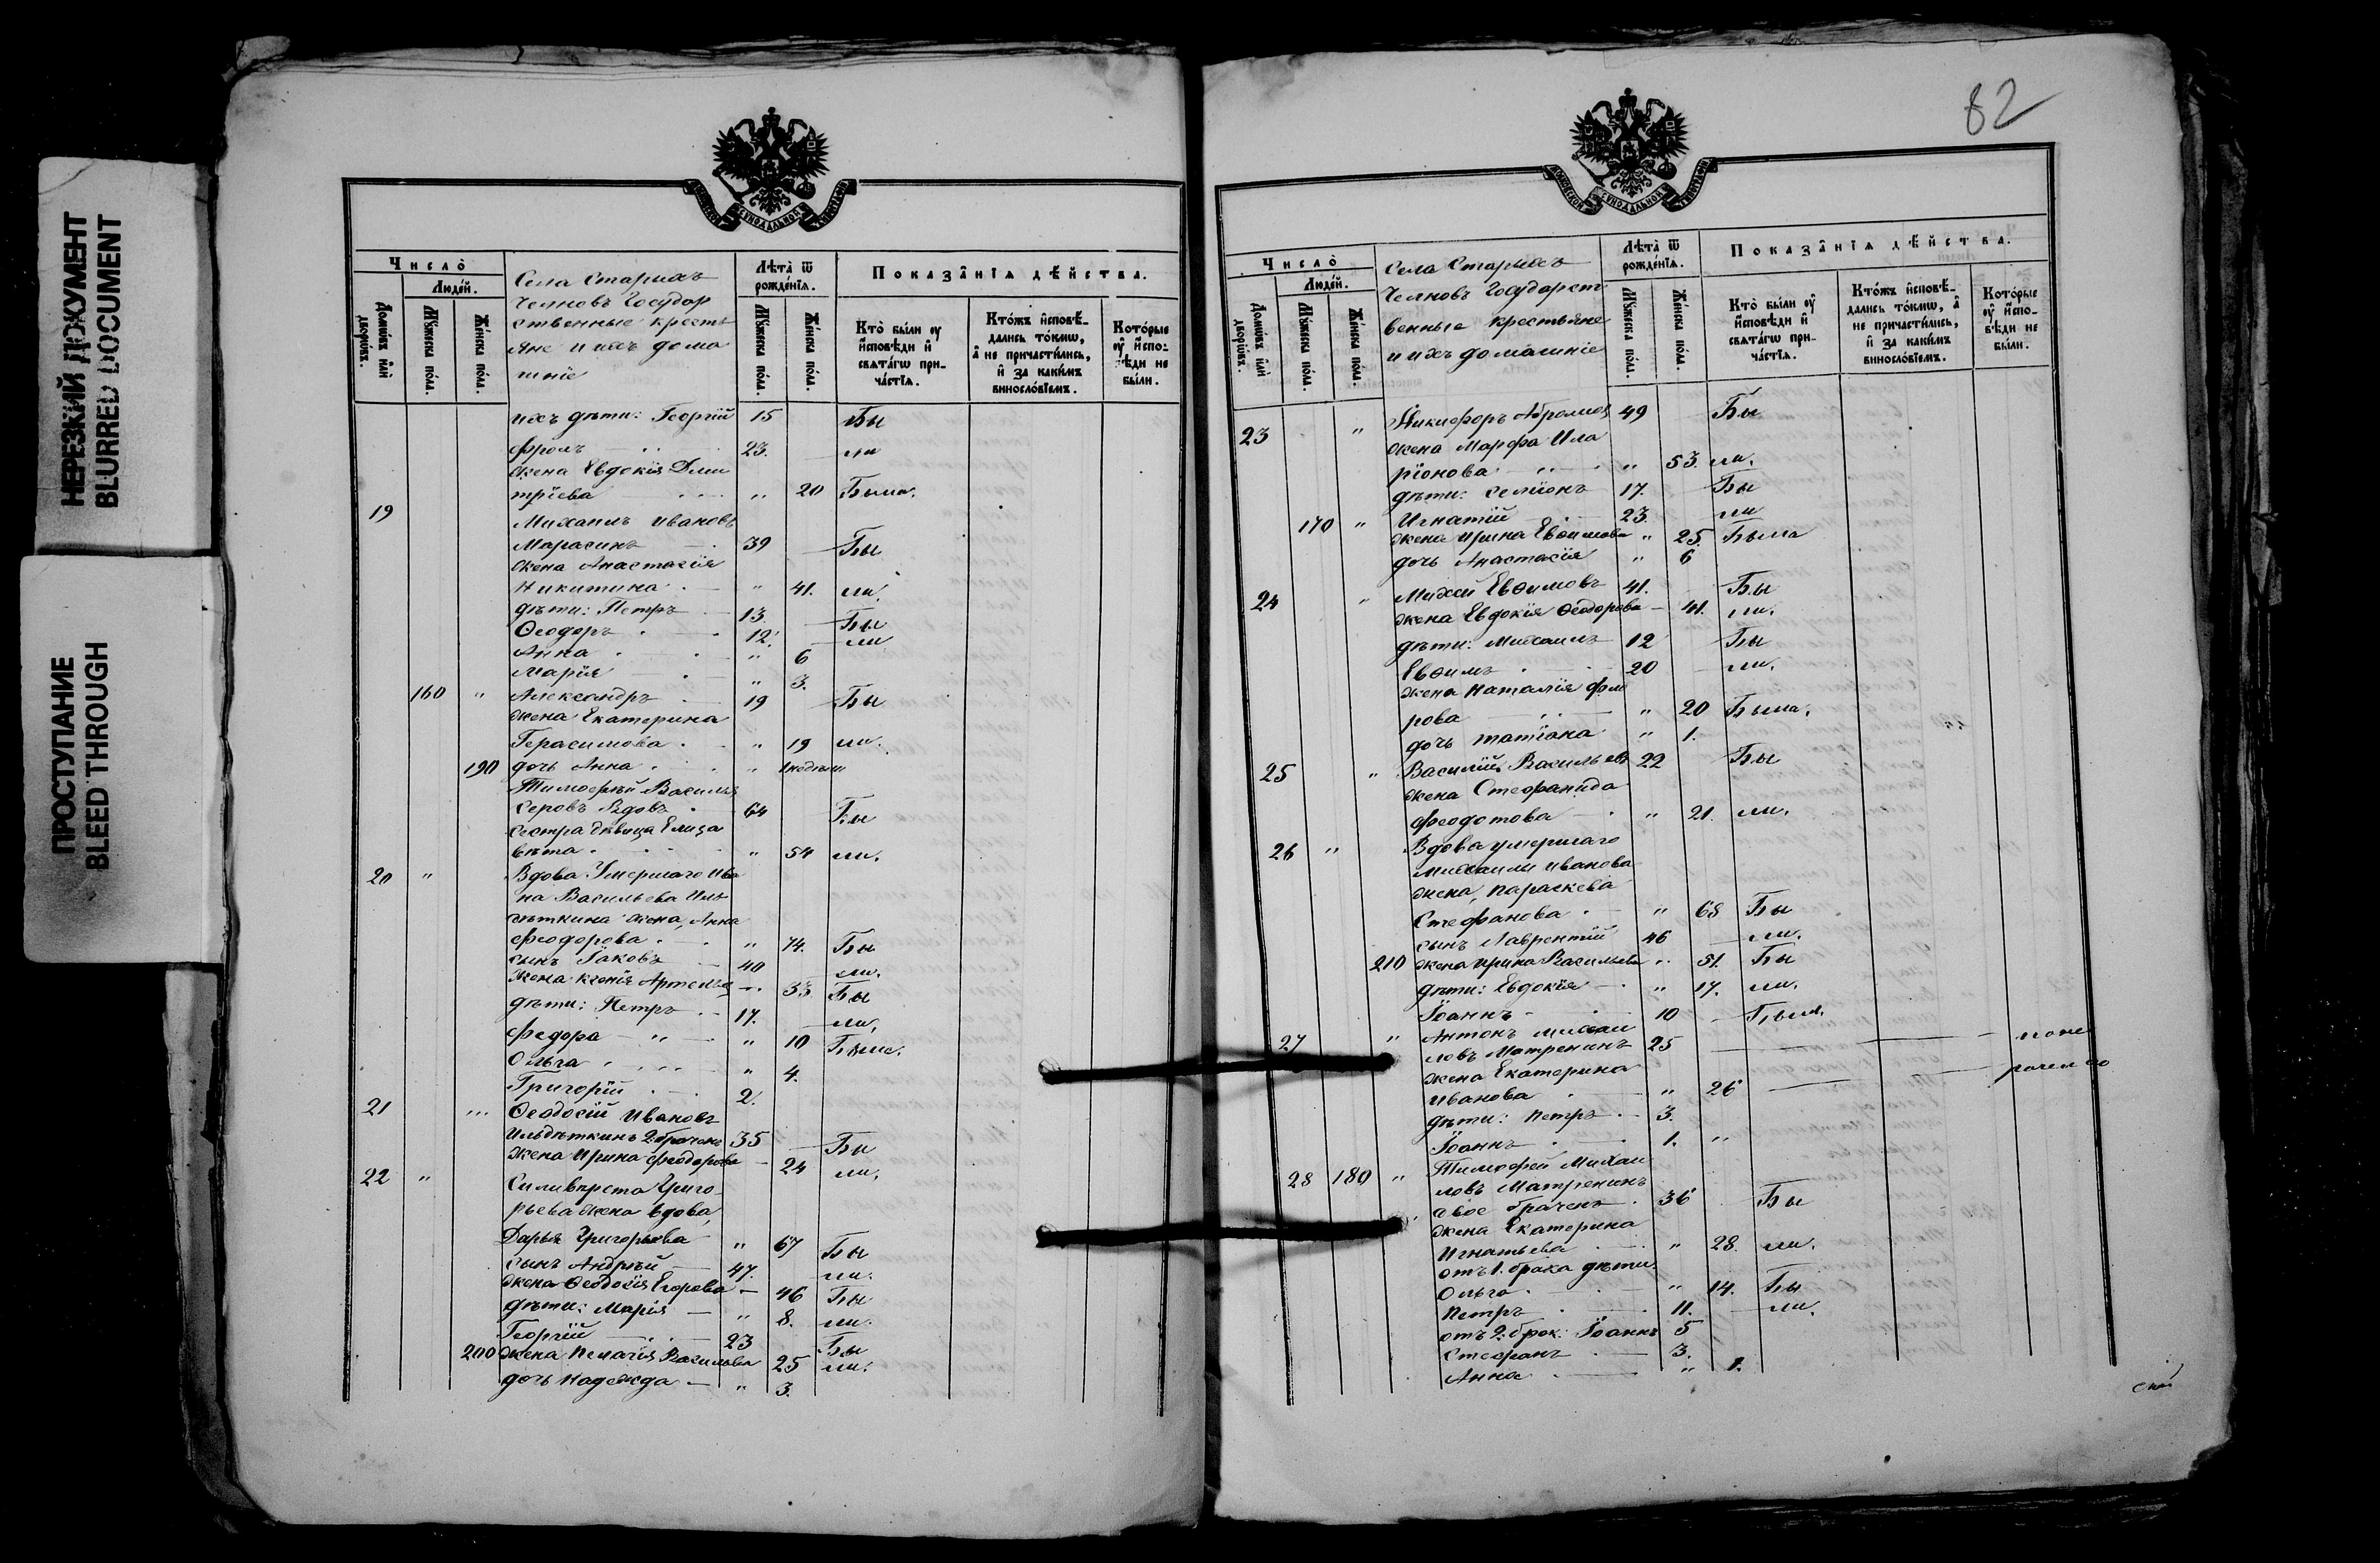 НЕРЕЗКИЙ ДОКУМЕНТ
BLURRED DOCUMENT
ПРОСТУПАНИЕ
BLEED THROUGH
МОСКОВСКОЙ СѴНОДАЛЬНОЙ ТИПОГРАФІИ
Число̀
Люде́й.
Домѡ́въ и҆лѝ дворѡ́въ.
Мꙋ́жеска по́ла.
Же́нска по́ла.
Села Старыхъ
Челновъ Государ
ственные кресть
яне и ихъ дома
шніе
Лѣта̀ ѿ рожде́нїѧ.
Мꙋ́жеска по́ла.
Же́нска по́ла.
Показа̂нїѧ дѣ́йства.
Кто̀ бы́ли оу҆ и҆сповѣди и҆ свѧта́гѡ при- ча́стїѧ.
Кто́жъ и҆сповѣ́- дались то́кмѡ, а҆ не причасти́лись, и҆ за каки́мъ винослѡ́вїемъ.
Кото́рые оу҆ и҆спо- вѣди не бы́ли.
ихъ дѣти: Георгій 15 Бы
Фролъ 23. ли
жена Евдокія Дми
тріева " 20 Была.
19 Михаилъ Ивановъ
Марасинъ 39 Бы
жена Анастасія
Никитина " 41. ли.
дѣти: Петръ 13. Бы
Ѳеодоръ 12. ли
Анна " 6
Марія " 3.
160 " Александръ 19 Бы
жена Екатерина
Герасимова " 19 ли.
190 дочь Анна " 1 недѣли
Тимофѣй Васильев
Серовъ вдовъ 64 Бы
сестра дѣвица Елиза
вѣта " 54 ли.
20 " Вдова Умершаго Ива
на Васильева Иль
дѣткина жена, Анна
Феодорова " 74. Бы
сынъ Іаковъ 40 ли.
жена Ксенія Артемьев " 33 Бы
дѣти: Петръ 17. ли.
Федора " 10 Была.
Ольга " 4.
Григорій 2.
21 " Ѳеодосій Ивановъ
Ильдѣткинъ 2 браченъ 35 Бы
жена Ирина Феодорова 24 ли.
22 " Силивѣрста Григо
рьева жена вдова,
Дарья Григорьева " 67 Бы
сынъ Андрѣй 47. ли.
жена Ѳеодосія Егорова 46 Бы
дѣти: Марія " 8. ли.
Георгій 23 Бы
200 жена Пелагія Васильева 25 ли.
дочь Надежда " 3.
82
МОСКОВСКОЙ СѴНОДАЛЬНОЙ ТИПОГРАФІИ
Число̀
Люде́й.
Домѡ́въ и҆лѝ дворѡ́въ.
Мꙋ́жеска по́ла.
Же́нска по́ла.
Села Старыхъ
Челновъ Государст
венные крестьяне
и ихъ домашніе
Лѣта̀ ѿ рожде́нїѧ.
Мꙋ́жеска по́ла.
Же́нска по́ла.
Показа̂нїѧ дѣ́йства.
Кто̀ бы́ли оу҆ и҆сповѣди и҆ свѧта́гѡ при- ча́стїѧ.
Кто́жъ и҆сповѣ́- дались то́кмѡ, а҆ не причасти́лись, и҆ за каки́мъ винослѡ́вїемъ.
Кото́рые оу҆ и҆спо- вѣди не бы́ли.
23 " Никифоръ Абрамов 49 Бы
жена Марфа Ила
ріонова " 53. ли.
дѣти: Семіонъ 17. Бы
170 " Игнатій 23. ли
жена Ирина Евѳимова " 25. Была
дочь Анастасія " 6
24 " Михей Евѳимовъ 41. Бы
жена Евдокія Ѳеодорова 41. ли.
дѣти: Михаилъ 12 Бы
Евѳимъ 20 ли.
жена Наталія Фло
рова " 20 Была.
дочь Татіана " 1.
25 " Василій Васильевъ 22 Бы
жена Стефанида
Феодотова " 21. ли.
26 " Вдова умершаго
Михаилы Иванова
жена, Параскева
Стефанова " 68 Бы
сынъ Лаврентій 46 ли.
210 жена Ирина Васильева " 51. Бы
дѣти: Евдокія " 17. ли.
Іоаннъ 10 Былъ.
27 " Антонъ Михаи
ловъ Матренинъ 25
жена Екатерина
Иванова " 26
дѣти: Петръ 3.
Іоаннъ 1. "
28 180 " Тимофей Михаи
ловъ Матренинъ
двое браченъ 36 Бы
жена Екатерина
Игнатьева " 28. ли.
отъ 1. брака дѣти
Ольга " 14. Бы
Петръ 11. ли.
отъ 2. брак: Іоаннъ 5
Стефанъ 3.
Анна " 1.